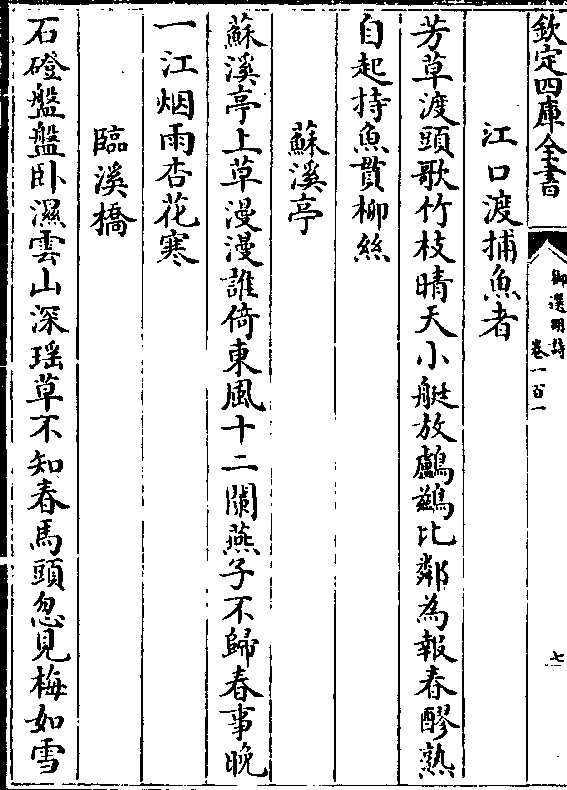 欽定四庫全書
御選明詩
卷一百一
七
江口渡捕魚者
芳草渡頭歌竹枝晴天小艇放鸕鷀比鄰為報春醪熟
自起持魚貫柳絲
蘇溪亭
蘇溪亭上草漫漫誰倚東風十二闌燕子不歸春事晚
一江烟雨杏花寒
臨溪橋
石磴盤盤卧濕雲山深瑶草不知春馬頭忽見梅如雪